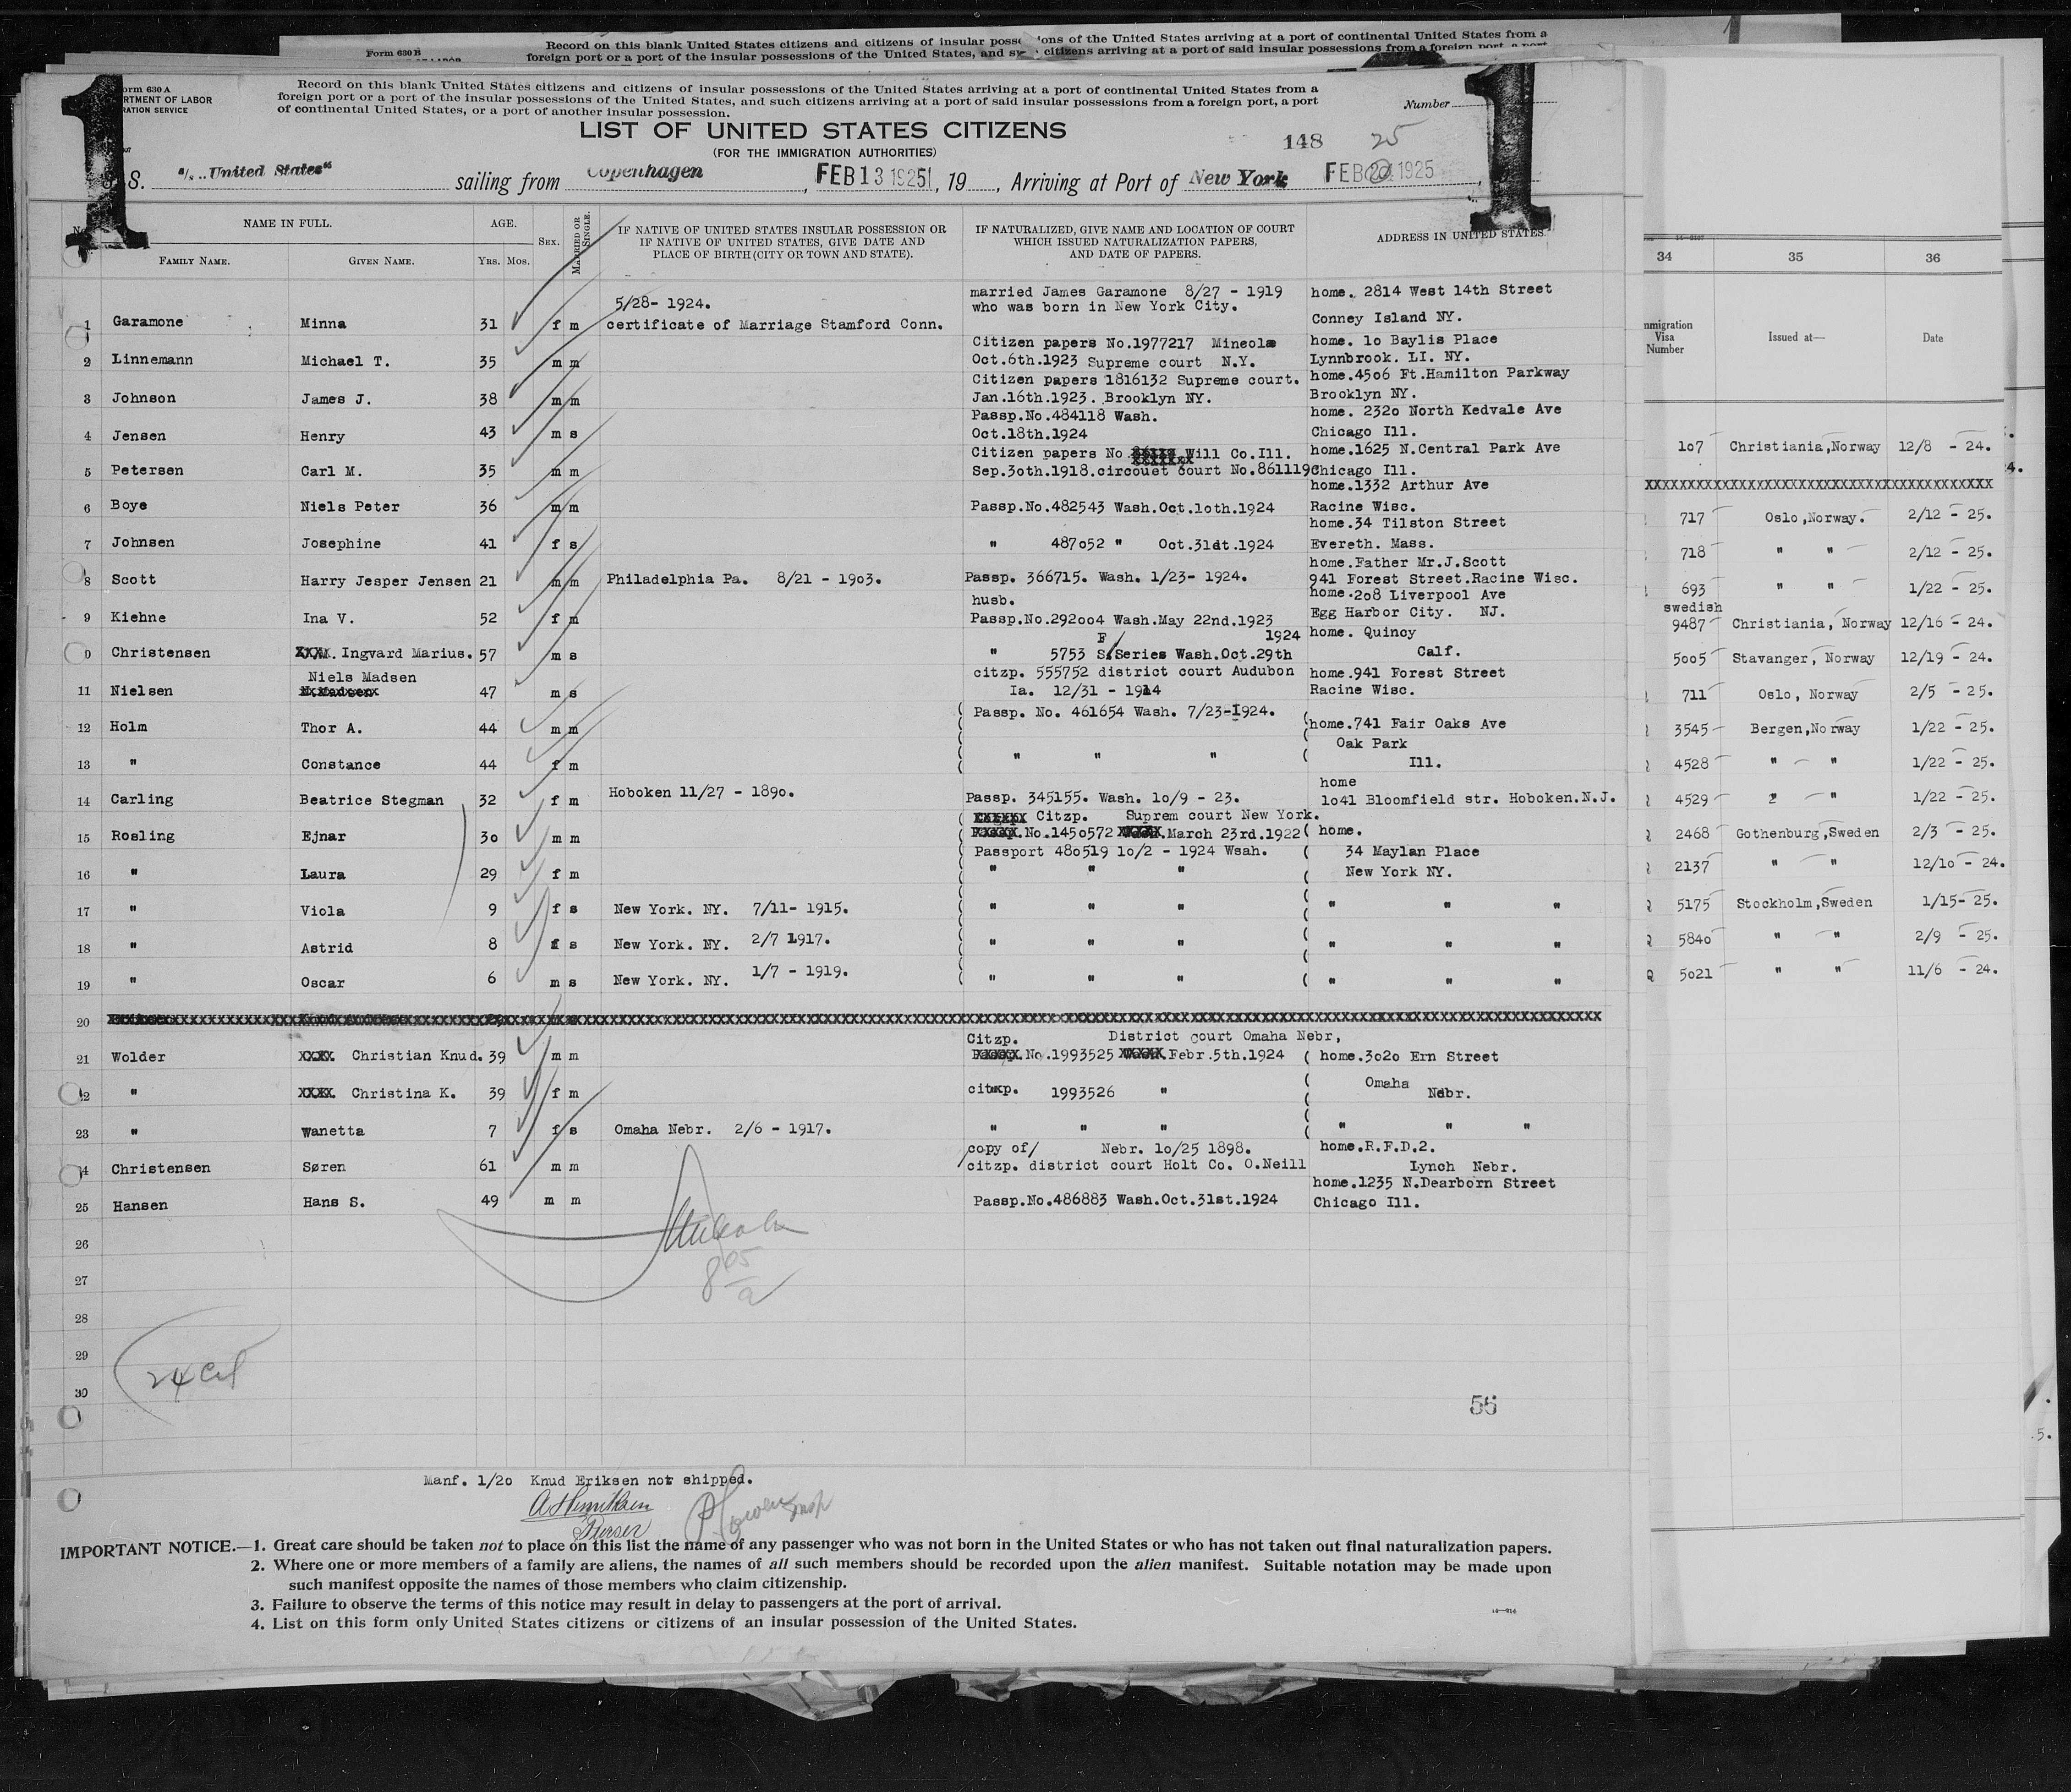 Form 630 B
Record on this blank United States citizens and citizens of insular possessions of the United States arriving at a port of continental United States from a
foreign port or a port of the insular possessions of the United States, and citizens arriving at a port of said insular possessions from a foreign port, a port
Form 630 A
DEPARTMENT OF LABOR
IMMIGRATION SERVICE
Record on this blank United States citizens and citizens of insular possessions of the United States arriving at a port of continental United States from a
foreign port or a port of the insular possessions of the United States, and such citizens arriving at a port of said insular possessions from a foreign port, a port
of continental United States, or a port of another insular possession.
Number
1
1
LIST OF UNITED STATES CITIZENS
(FOR THE IMMIGRATION AUTHORITIES)
148 25
S. S. s/s. "United States" sailing from Copenhagen, FEB 13 1925, 19 , Arriving at Port of New York FEB 1925
NAME IN FULL. AGE. SEX. MARRIED OR SINGLE. IF NATIVE OF UNITED STATES INSULAR POSSESSION OR IF NATIVE OF UNITED STATES, GIVE DATE AND PLACE OF BIRTH (CITY OR TOWN AND STATE). IF NATURALIZED, GIVE NAME AND LOCATION OF COURT WHICH ISSUED NATURALIZATION PAPERS, AND DATE OF PAPERS. ADDRESS IN UNITED STATES.
FAMILY NAME. GIVEN NAME. YRS. MOS.
5/28- 1924. married James Garamone 8/27 - 1919 home. 2814 West 14th Street
who was born in New York City.
1 Garamone Minna 31 f m certificate of Marriage Stamford Conn. Conney Island NY.
Citizen papers No.1977217 Mineola home. 10 Baylis Place
2 Linnemann Michael T. 35 m m Oct.6th.1923 Supreme court N.Y. Lynnbrook. LI. NY.
Citizen papers 1816132 Supreme court. home.4506 Ft.Hamilton Parkway
3 Johnson James J. 38 m m Jan.16th.1923. Brooklyn NY. Brooklyn NY.
Passp.No.484118 Wash. home. 2320 North Kedvale Ave
4 Jensen Henry 43 m s Oct.18th.1924 Chicago Ill.
Citizen papers No Will Co.Ill. home.1625 N.Central Park Ave
5 Petersen Carl M. 35 m m Sep.30th.1918.circouet court No.861119 Chicago Ill.
home.1332 Arthur Ave
6 Boye Niels Peter 36 m m Passp.No.482543 Wash.Oct.10th.1924 Racine Wisc.
home.34 Tilston Street
7 Johnsen Josephine 41 f s " 487052 " Oct.31dt.1924 Evereth. Mass.
home.Father Mr.J.Scott
8 Scott Harry Jesper Jensen 21 m m Philadelphia Pa. 8/21 - 1903. Passp. 366715. Wash. 1/23- 1924. 941 Forest Street.Racine Wisc.
husb. home.208 Liverpool Ave
9 Kiehne Ina V. 52 f m Passp.No.292004 Wash.May 22nd.1923 Egg Harbor City. NJ.
F 1924 home. Quincy
0 Christensen XXXX. Ingvard Marius. 57 m s " 5753 S.Series Wash.Oct.29th Calf.
Niels Madsen citzp. 555752 district court Audubon home.941 Forest Street
11 Nielsen 47 m s Ia. 12/31 - 1914 Racine Wisc.
Passp. No. 461654 Wash. 7/23-1924.
12 Holm Thor A. 44 m m home.741 Fair Oaks Ave
Oak Park
13 " Constance 44 f m " " " Ill.
home
14 Carling Beatrice Stegman 32 f m Hoboken 11/27 - 1890. Passp. 345155. Wash. 10/9 - 23. 1041 Bloomfield str. Hoboken.N.J.
Citzp. Suprem court New York.
15 Rosling Ejnar 30 m m No.1450572 March 23rd.1922 home.
Passport 480519 10/2 - 1924 Wsah. 34 Maylan Place
16 " Laura 29 f m " " " New York NY.
17 " Viola 9 f s New York. NY. 7/11- 1915. " " " " " "
18 " Astrid 8 f s New York. NY. 2/7 1917. " " " " " "
19 " Oscar 6 m s New York. NY. 1/7 - 1919. " " " " " "
20
Citzp. District court Omaha Nebr,
21 Wolder XXXX Christian Knud. 39 m m No.1993525 Febr.5th.1924 home.3020 Ern Street
Omaha
22 " XXXX Christina K. 39 f m citzp. 1993526 " Nebr.
23 " Wanetta 7 f s Omaha Nebr. 2/6 - 1917. " " " " " "
copy of/ Nebr. 10/25 1898. home.R.F.D.2.
24 Christensen Søren 61 m m citzp. district court Holt Co. O.Neill Lynch Nebr.
home.1235 N.Dearborn Street
25 Hansen Hans S. 49 m m Passp.No.486883 Wash.Oct.31st.1924 Chicago Ill.
26
27
28
29
24 Cit
30
56
Manf. 1/20 Knud Eriksen not shipped.
Purser
Insp
IMPORTANT NOTICE.—1. Great care should be taken not to place on this list the name of any passenger who was not born in the United States or who has not taken out final naturalization papers.
2. Where one or more members of a family are aliens, the names of all such members should be recorded upon the alien manifest. Suitable notation may be made upon
such manifest opposite the names of those members who claim citizenship.
3. Failure to observe the terms of this notice may result in delay to passengers at the port of arrival.
4. List on this form only United States citizens or citizens of an insular possession of the United States.
34 35 36
Immigration Visa Number Issued at— Date
107 Christiania,Norway 12/8 - 24.
XXXXXXXXXXXXXXXXXXXXXXXXXXXXXXXXXXXXXXXXX
717 Oslo,Norway. 2/12 - 25.
718 " " 2/12 - 25.
693 " " 1/22 - 25.
swedish
9487 Christiania, Norway 12/16 - 24.
5005 Stavanger, Norway 12/19 - 24.
711 Oslo, Norway 2/5 - 25.
3545 Bergen,Norway 1/22 - 25.
4528 " " 1/22 - 25.
4529 " " 1/22 - 25.
2468 Gothenburg,Sweden 2/3 - 25.
2137 " " 12/10 - 24.
5175 Stockholm,Sweden 1/15- 25.
5840 " " 2/9 - 25.
5021 " " 11/6 - 24.